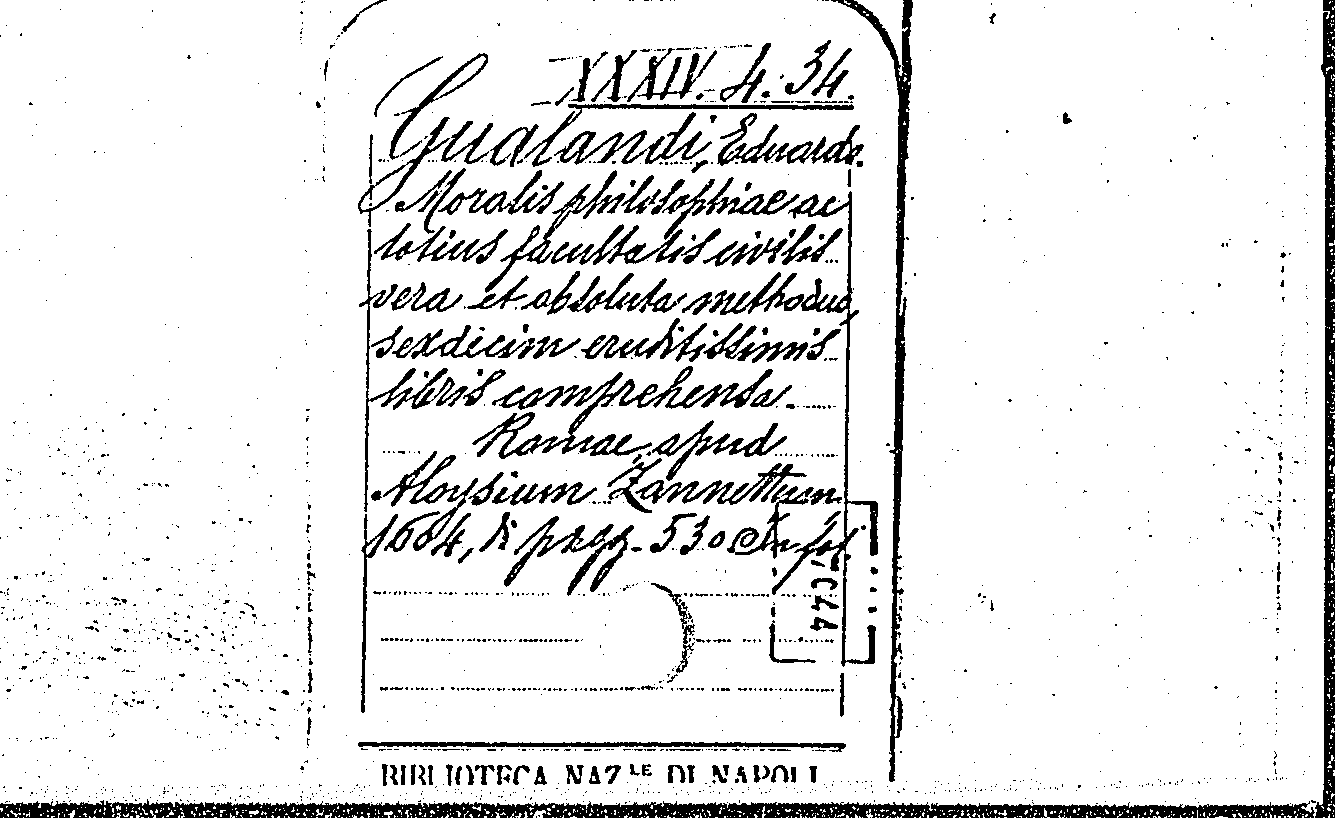 XXXIV. 4. 34.
Gualandi, Eduardo.
Moralis philosophiae ac
totius facultatis civilis
vera et absoluta methodus,
sexdecim eruditissimis
libris comprehensa.
Romae, apud
Aloysium Zannettum
1604, di pagg. 530 in fol.
BIBLIOTECA NAZLE DI NAPOLI